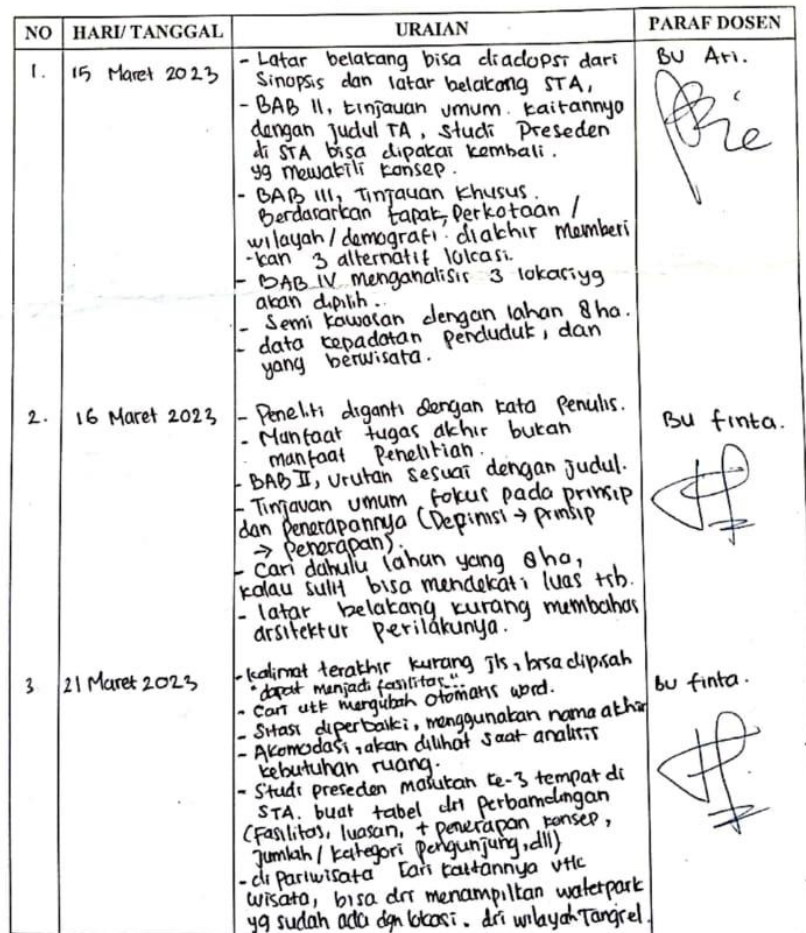 NO HARI/ TANGGAL URAIAN PARAF DOSEN
1. 15 Maret 2023 - Latar belakang bisa diadopsi dari Bu Ari.
Sinopsis dan latar belakang STA,
- BAB II, tinjauan umum. kaitannya
dengan judul TA, studi Preseden
di STA bisa dipakai kembali.
yg mewakili konsep.
- BAB III, Tinjauan khusus.
Berdasarkan tapak, perkotaan /
wilayah / demografi. diakhir memberi
-kan 3 alternatif lokasi.
- BAB IV menganalisis 3 lokasi yg
akan dipilih..
- Semi kawasan dengan lahan 8 ha.
- data kepadatan penduduk, dan
yang berwisata.
2. 16 Maret 2023 - Peneliti diganti dengan kata Penulis. Bu finta.
- Manfaat tugas akhir bukan
manfaat Penelitian.
- BAB II, urutan sesuai dengan judul.
- Tinjauan umum fokus pada prinsip
dan penerapannya (Depinisi → prinsip
→ penerapan).
- Cari dahulu lahan yang 8 ha,
kalau sulit bisa mendekati luas tsb.
- latar belakang kurang membahas
arsitektur perilakunya.
3 21 Maret 2023 - kalimat terakhir kurang jls, bisa dipisah Bu finta.
"dapat menjadi fasilitas"
- Cari utk mengubah otomatis word.
- Sitasi diperbaiki, menggunakan nama akhir
- Akomodasi, akan dilihat saat analisis
kebutuhan ruang.
- Studi preseden masukan ke-3 tempat di
STA. buat tabel dri perbamdingan
(Fasilitas, luasan, + penerapan konsep,
jumlah / kategori pengunjung, dll)
- di pariwisata cari kaitannya utk
wisata, bisa dri menampilkan waterpark
yg sudah ada dgn lokasi. dri wilayah Tangsel.